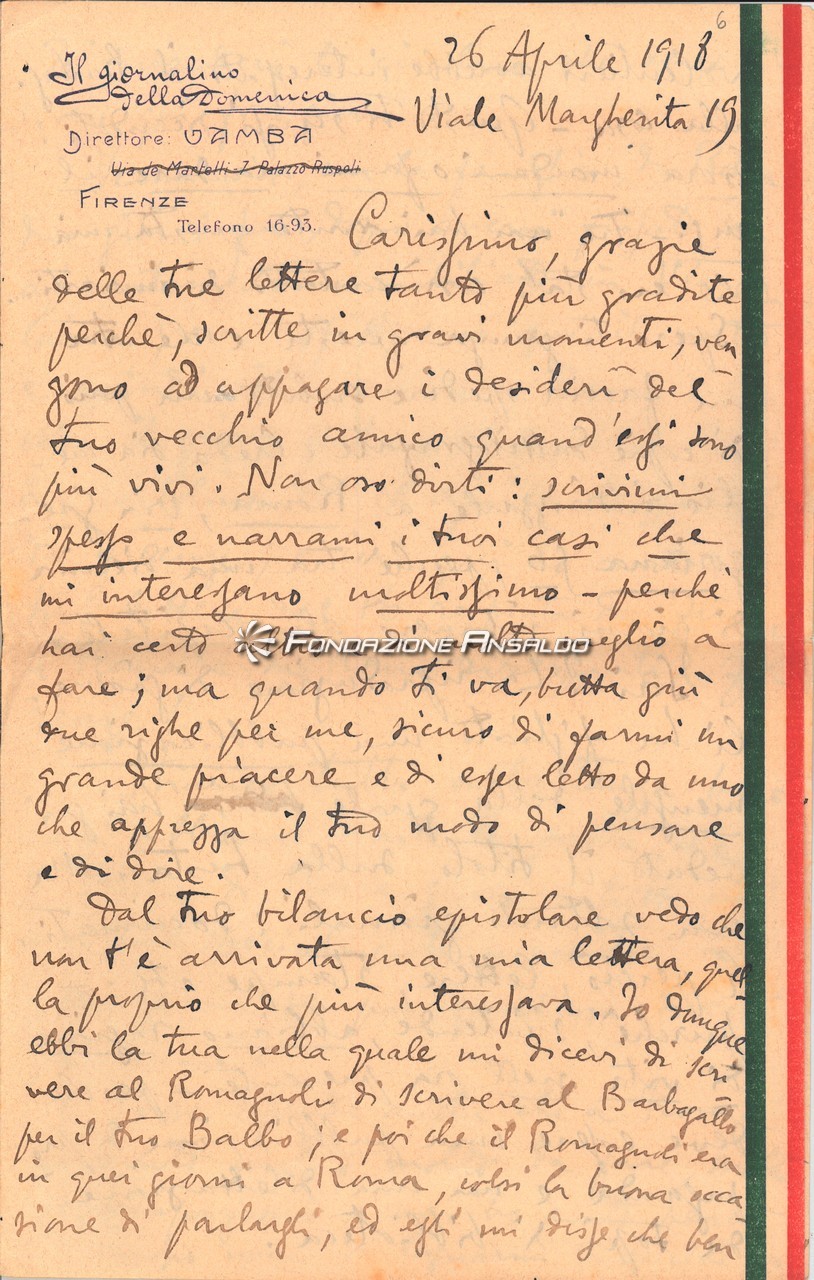 6
26 Aprile 1918
Viale Margherita 19
Il giornalino
della Domenica
Direttore: VAMBA
Via de Martelli-7 Palazzo Ruspoli
FIRENZE
Telefono 16-93.
Carissimo, grazie
delle tue lettere tanto più gradite
perchè, scritte in gravi momenti, ven
gono ad appagare i desideri del
tuo vecchio amico quand'essi sono
più vivi. Non oso dirti: scrivimi
spesso e narrami i tuoi casi che
mi interessano moltissimo - perchè
hai certo altro di molto meglio a
FONDAZIONE ANSALDO
fare; ma quando ti va, butta giù
due righe per me, sicuro di farmi un
grande piacere e di esser letto da uno
che apprezza il tuo modo di pensare
e di dire.
Dal tuo bilancio epistolare vedo che
non t'è arrivata una mia lettera, quel
la proprio che più interessava. Io dunque
ebbi la tua nella quale mi dicevi di scri
vere al Romagnoli di scrivere al Barbagallo
per il tuo Balbo; e poi che il Romagnoli era
in quei giorni a Roma, colsi la buona occa
sione di parlargli, ed egli mi disse che ben